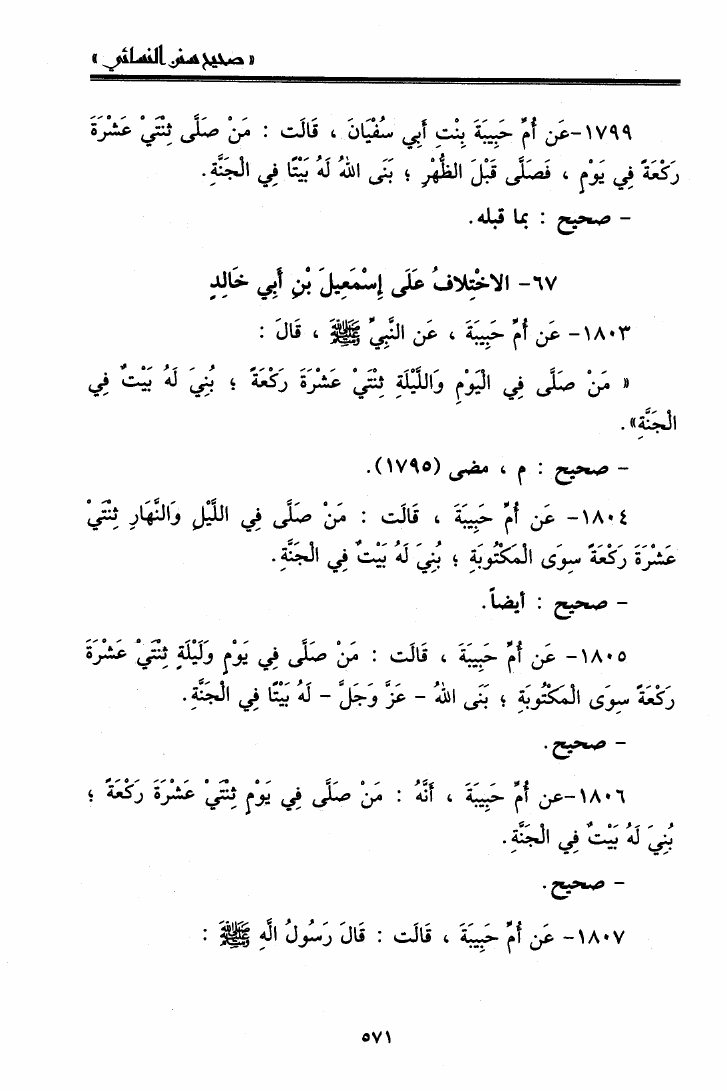 « صحيح سنن النسائي »
١٧٩٩-عَن أُمِّ حَبِيبَةَ بِنْتِ أَبِي سُفْيَانَ ، قَالَت : مَنْ صَلَّى ثِنْتَيْ عَشْرَةَ
رَكْعَةً فِي يَوْمٍ ، فَصَلَّى قَبْلَ الظُّهْرِ ؛ بَنَى اللهُ لَهُ بَيْتًا فِي الْجَنَّةِ.
- صحيح : بما قبله.
٦٧- الاخْتِلافُ عَلَى إِسْمَعِيلَ بْنِ أَبِي خَالِدٍ
١٨٠٣- عَن أُمِّ حَبِيبَةَ ، عَن النَّبِيِّ ﷺ ، قَالَ :
« مَنْ صَلَّى فِي الْيَوْمِ وَاللَّيْلَةِ ثِنْتَيْ عَشْرَةَ رَكْعَةً ؛ بُنِيَ لَهُ بَيْتٌ فِي
الْجَنَّةِ».
- صحيح : م ، مضى (١٧٩٥).
١٨٠٤- عَن أُمِّ حَبِيبَةَ ، قَالَت : مَنْ صَلَّى فِي اللَّيْلِ وَالنَّهَارِ ثِنْتَيْ
عَشْرَةَ رَكْعَةً سِوَى الْمَكْتُوبَةِ ؛ بُنِيَ لَهُ بَيْتٌ فِي الْجَنَّةِ.
- صحيح : أيضاً.
١٨٠٥- عَن أُمِّ حَبِيبَةَ ، قَالَت : مَنْ صَلَّى فِي يَوْمٍ وَلَيْلَةٍ ثِنْتَيْ عَشْرَةَ
رَكْعَةً سِوَى الْمَكْتُوبَةِ ؛ بَنَى اللهُ - عَزَّ وَجَلَّ - لَهُ بَيْتًا فِي الْجَنَّةِ.
- صحيح.
١٨٠٦-عن أُمِّ حَبِيبَةَ ، أَنَّهُ : مَنْ صَلَّى فِي يَوْمٍ ثِنْتَيْ عَشْرَةَ رَكْعَةً ؛
بُنِيَ لَهُ بَيْتٌ فِي الْجَنَّةِ.
- صحيح.
١٨٠٧- عَن أُمِّ حَبِيبَةَ ، قَالَت : قَالَ رَسُولُ الَّهِ ﷺ :
٥٧١